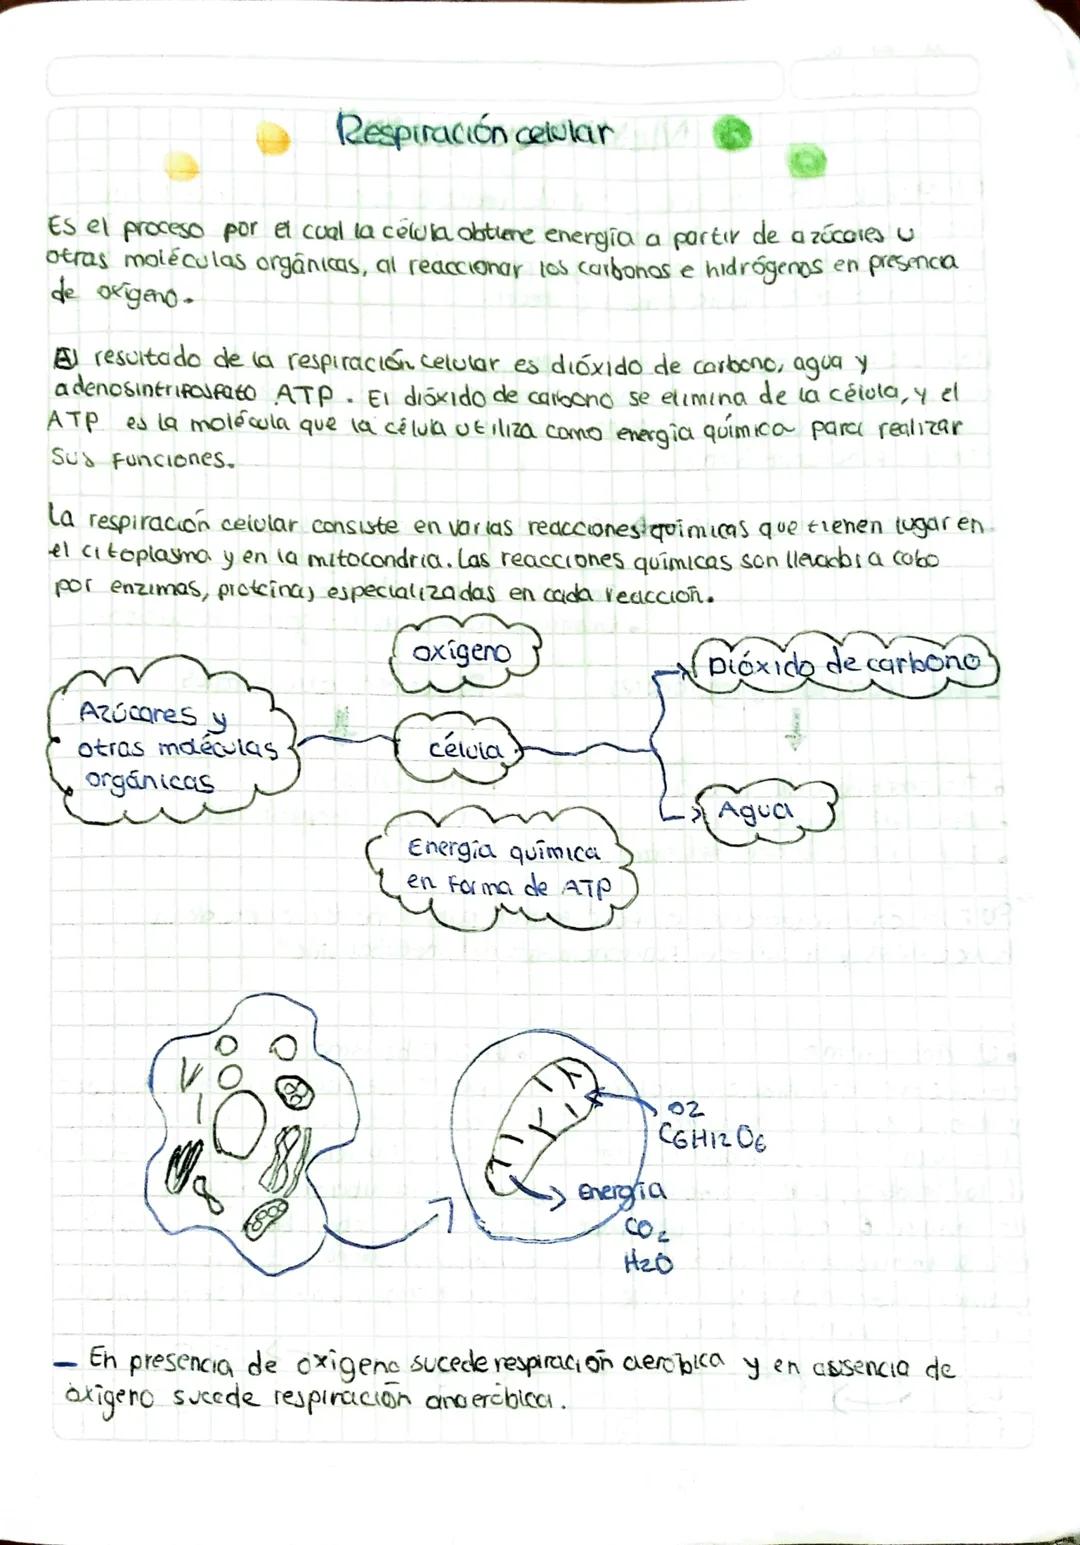 Respiración celular
Es el proceso por el cual la célula obtiene energía a partir de azúcares u
otras moléculas orgánicas, al reaccionar los carbonos e hidrógenos en presencia
de oxígeno.
El resultado de la respiración celular es dióxido de carbono, agua y
adenosintrifosfato ATP. El dióxido de carbono se elimina de la célula, y el
ATP es la molécula que la célula utiliza como energía química para realizar
sus funciones.
La respiración celular consiste en varias reacciones químicas que tienen lugar en
el citoplasma y en la mitocondria. Las reacciones químicas son llevadas a cabo
por enzimas, proteínas especializadas en cada reacción.
oxígeno
Dióxido de carbono
Azúcares y
otras moléculas
orgánicas
célula
Agua
Energía química
en forma de ATP
O2
C6H12O6
energía
CO2
H2O
- En presencia de oxígeno sucede respiración aeróbica y en ausencia de
oxígeno sucede respiración anaeróbica.